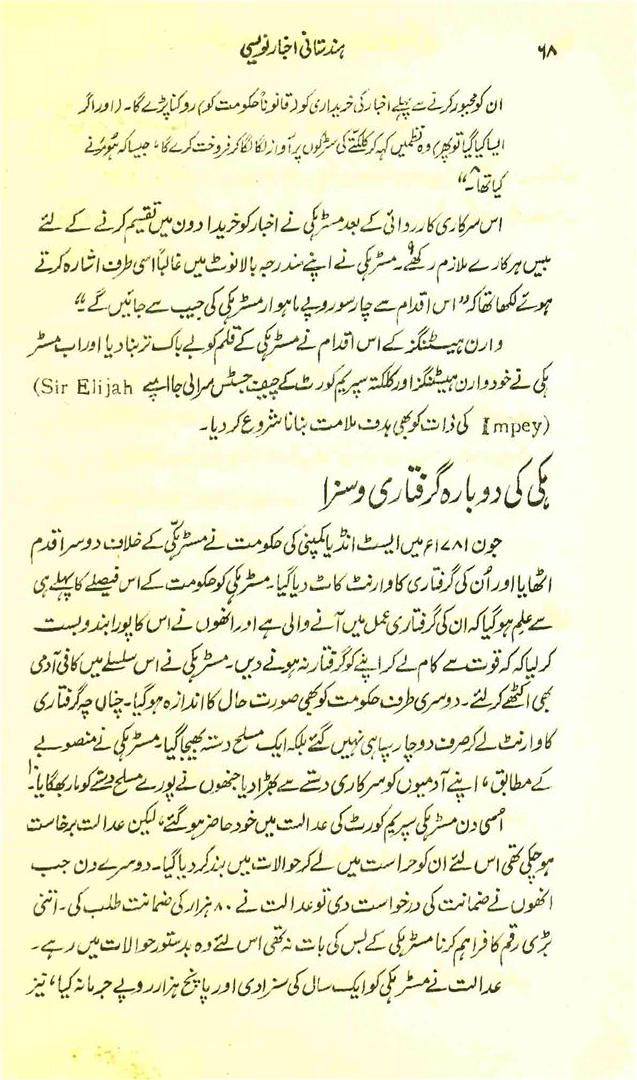 ۶۸ ہندستانی اخبار نویسی
ان کو مجبور کرنے سے پہلے اخبار کی خریداری کو (قانوناً حکومت کو) روکنا پڑے گا۔ (اور اگر
ایسا کیا گیا تو پھر) وہ نظمیں کہہ کر کلکتے کی سڑکوں پر آواز لگا لگا کر فروخت کرے گا، جیسا کہ ہومر نے
کیا تھا۔۸"
اس سرکاری کارروائی کے بعد مسٹر ہکی نے اخبار کو خریداروں میں تقسیم کرنے کے لئے
بیس ہرکارے ملازم رکھے۹۔ مسٹر ہکی نے اپنے مندرجہ بالا نوٹ میں غالباً اسی طرف اشارہ کرتے
ہوئے لکھا تھا کہ "اس اقدام سے چار سو روپے ماہوار مسٹر ہکی کی جیب سے جائیں گے۔"
وارن ہیسٹنگز کے اس اقدام نے مسٹر ہکی کے قلم کو بے باک تر بنا دیا اور اب مسٹر
ہکی نے خود وارن ہیسٹنگز اور کلکتہ سپریم کورٹ کے چیف جسٹس سرالی جا امپے (Sir Elijah
Impey) کی ذات کو بھی ہدف ملامت بنانا شروع کر دیا۔
ہکی کی دوبارہ گرفتاری و سزا
جون ۱۷۸۱ء میں ایسٹ انڈیا کمپنی کی حکومت نے مسٹر ہکّی کے خلاف دوسرا قدم
اٹھایا اور اُن کی گرفتاری کا وارنٹ کاٹ دیا گیا۔ مسٹر ہکی کو حکومت کے اس فیصلے کا پہلے ہی
سے علم ہو گیا کہ ان کی گرفتاری عمل میں آنے والی ہے اور انھوں نے اس کا پورا بندوبست
کر لیا کہ کہ قوت سے کام لے کر اپنے کو گرفتار نہ ہونے دیں۔ مسٹر ہکی نے اس سلسلے میں کافی آدمی
بھی اکٹھے کر لئے۔ دوسری طرف حکومت کو بھی صورت حال کا اندازہ ہو گیا۔ چناں چہ گرفتاری
کا وارنٹ لے کر صرف دو چار سپاہی نہیں گئے بلکہ ایک مسلح دستہ بھیجا گیا۔ مسٹر ہکی نے منصوبے
کے مطابق، اپنے آدمیوں کو سرکاری دستے سے بھڑا دیا جنھوں نے پورے مسلح دستے کو مار بھگایا۱۰۔
اسی دن مسٹر ہکی سپریم کورٹ کی عدالت میں خود حاضر ہو گئے، لیکن عدالت برخاست
ہو چکی تھی اس لئے ان کو حراست میں لے کر حوالات میں بند کر دیا گیا۔ دوسرے دن جب
انھوں نے ضمانت کی درخواست دی تو عدالت نے ۸۰ ہزار کی ضمانت طلب کی۔ اتنی
بڑی رقم کا فراہم کرنا مسٹر ہکی کے بس کی بات نہ تھی اس لئے وہ بدستور حوالات میں رہے۔
عدالت نے مسٹر ہکی کو ایک سال کی سزا دی اور پانچ ہزار روپے جرمانہ کیا، نیز